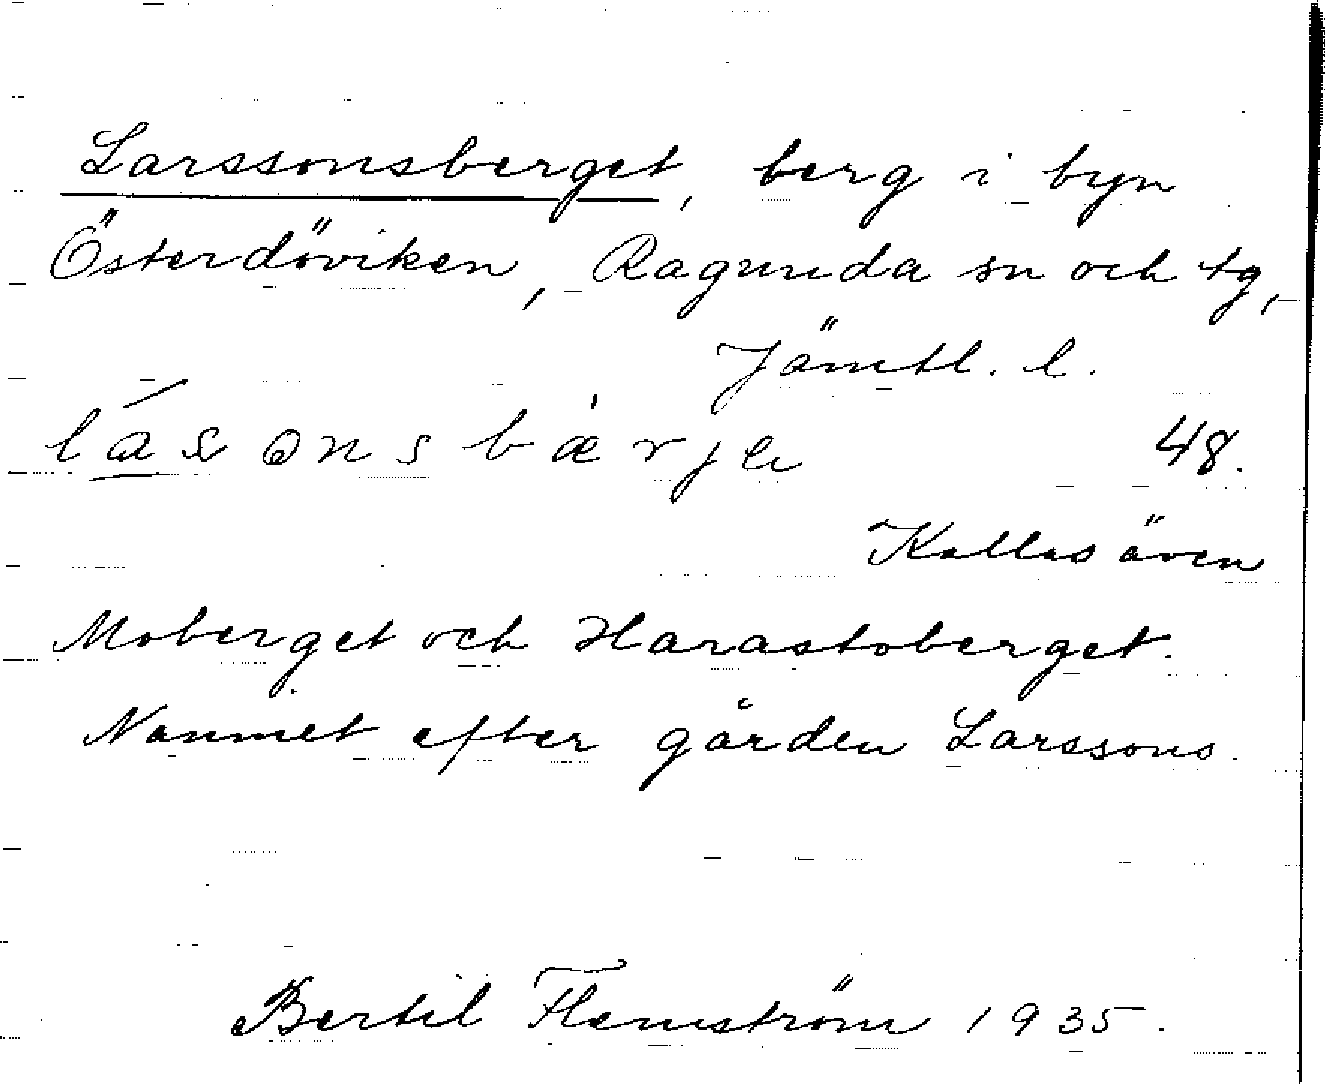 Larssonsberget, berg i byn
Österdöviken, Ragunda sn och tg,
Jämtl. l.
48.
Kallas även
Moberget och Harastoberget.
Namnet efter gården Larssons.
Bertil Flemström 1935.